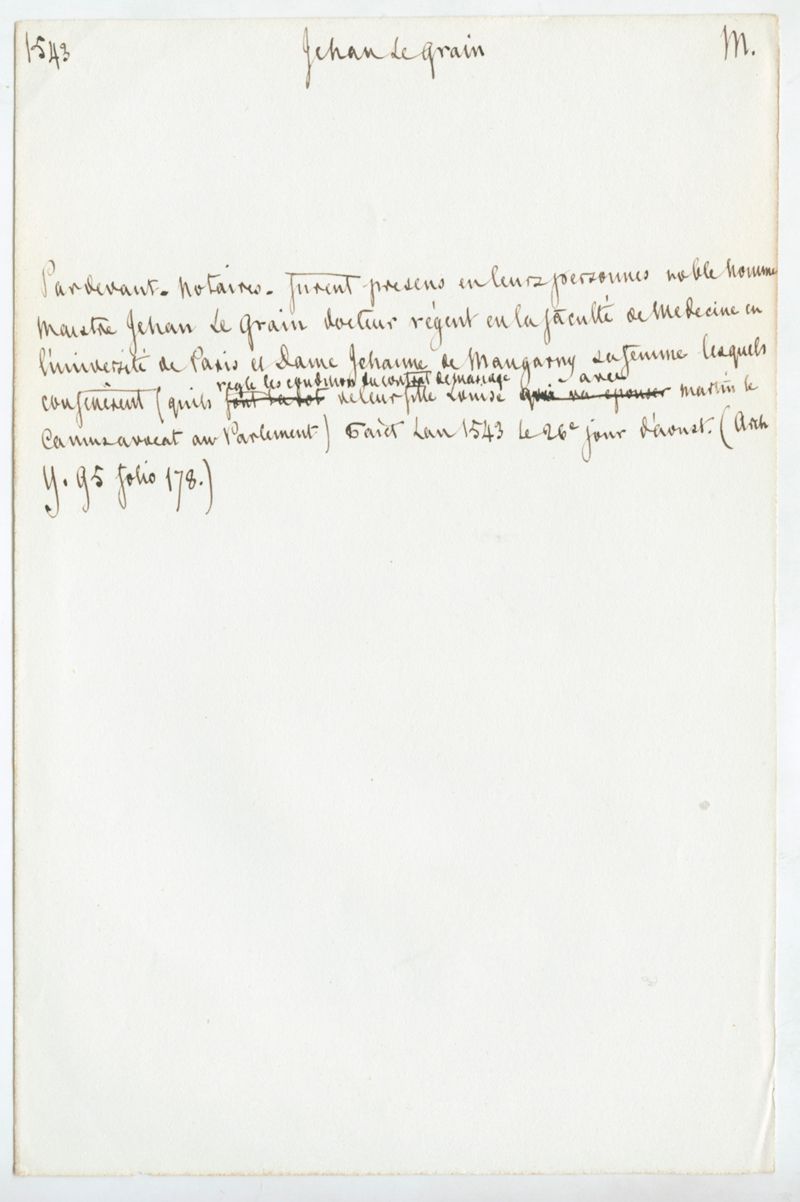 1543 Jehan Le Grain M.
Pardevant - Notaires - furent presens en leurs personnes noble homme
Maistre Jehan Le Grain docteur régent en la faculté de Medecine en
l'université de Paris et Dame Jehanne de Mangarny sa femme lesquels
règle les condition du contrat de mariage avec
confenèrent (quils font la dot de leur fille Louise qui va epouser martin le
Camus avocat au Parlement) Faict Lan 1543 le 26e jour d'áoust. (Arch
Y. 95 folio 178.)